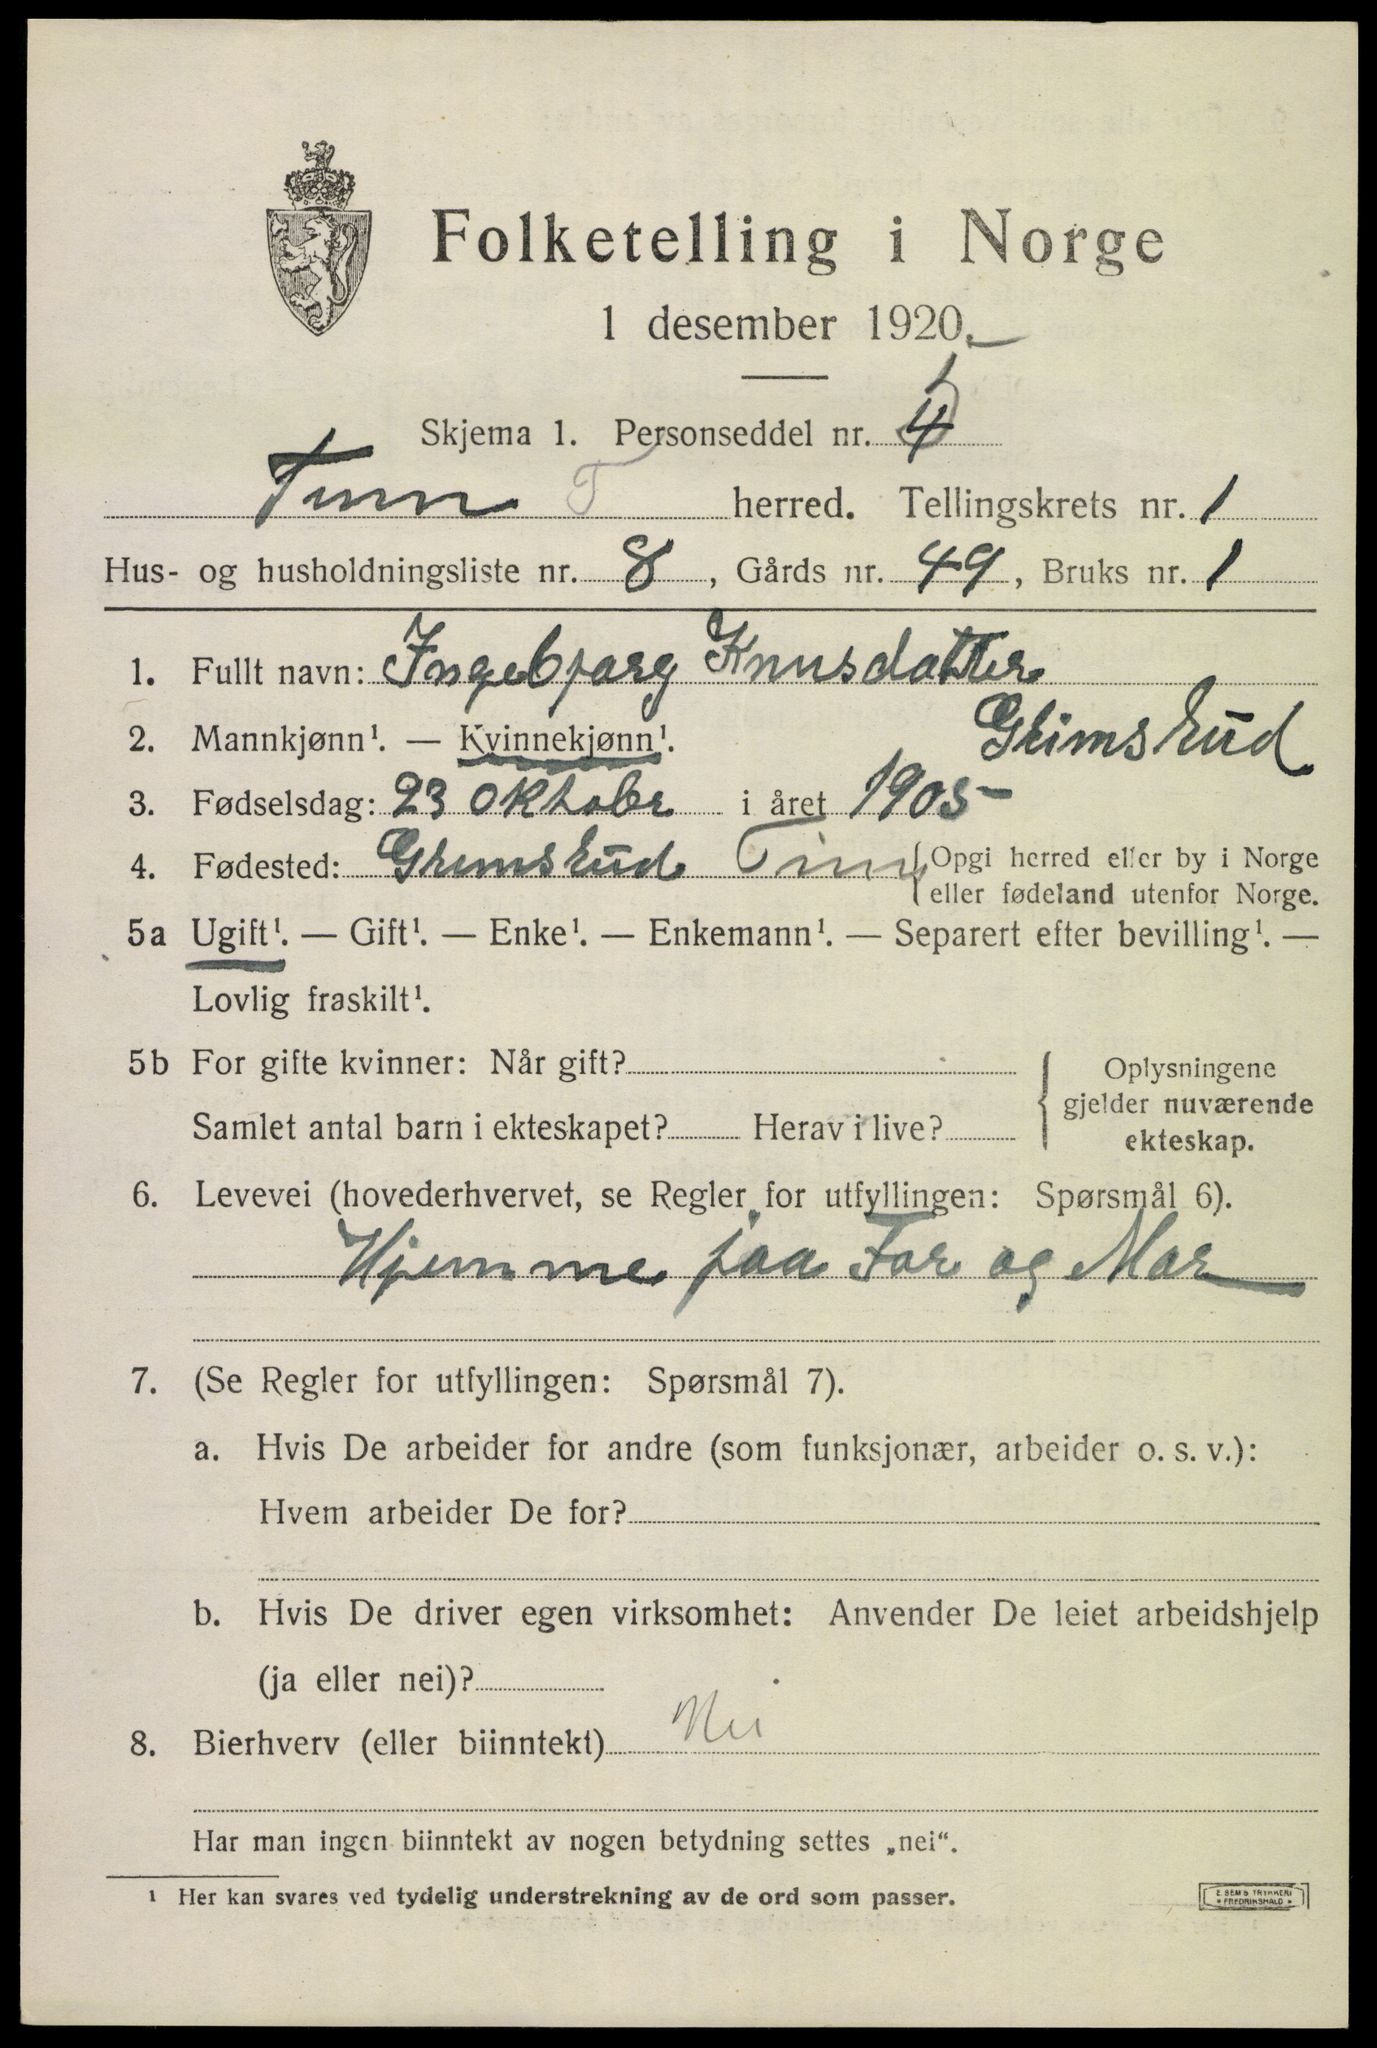 Folketelling i Norge
1 desember 1920.
Skjema 1. Personseddel nr. 4 5
Tinn T herred. Tellingskrets nr. 1
Hus- og husholdningsliste nr. 8, Gårds nr. 49, Bruks nr. 1
1. Fullt navn: Ingebjørg Knusdatter
Grimsrud
2. Mannkjønn¹. — Kvinnekjønn¹.
3. Fødselsdag: 23 Oktober i året 1905
4. Fødested: Grimsrud Tinn {Opgi herred eller by i Norge
eller fødeland utenfor Norge.
5a Ugift¹. — Gift¹. — Enke¹. — Enkemann¹. — Separert efter bevilling¹. —
Lovlig fraskilt¹.
5b For gifte kvinner: Når gift?
Samlet antal barn i ekteskapet? Herav i live?
Oplysningene
gjelder nuværende
ekteskap.
6. Levevei (hovederhvervet, se Regler for utfyllingen: Spørsmål 6).
Hjemme jaa Far og Mor
7. (Se Regler for utfyllingen: Spørsmål 7).
a. Hvis De arbeider for andre (som funksjonær, arbeider o. s. v.):
Hvem arbeider De for?
b. Hvis De driver egen virksomhet: Anvender De leiet arbeidshjelp
(ja eller nei)?
8. Bierhverv (eller biinntekt) Nei
Har man ingen biinntekt av nogen betydning settes „nei“.
¹ Her kan svares ved tydelig understrekning av de ord som passer.
E. SEM'S TRYKKERI
* FREDRIKSHALD *